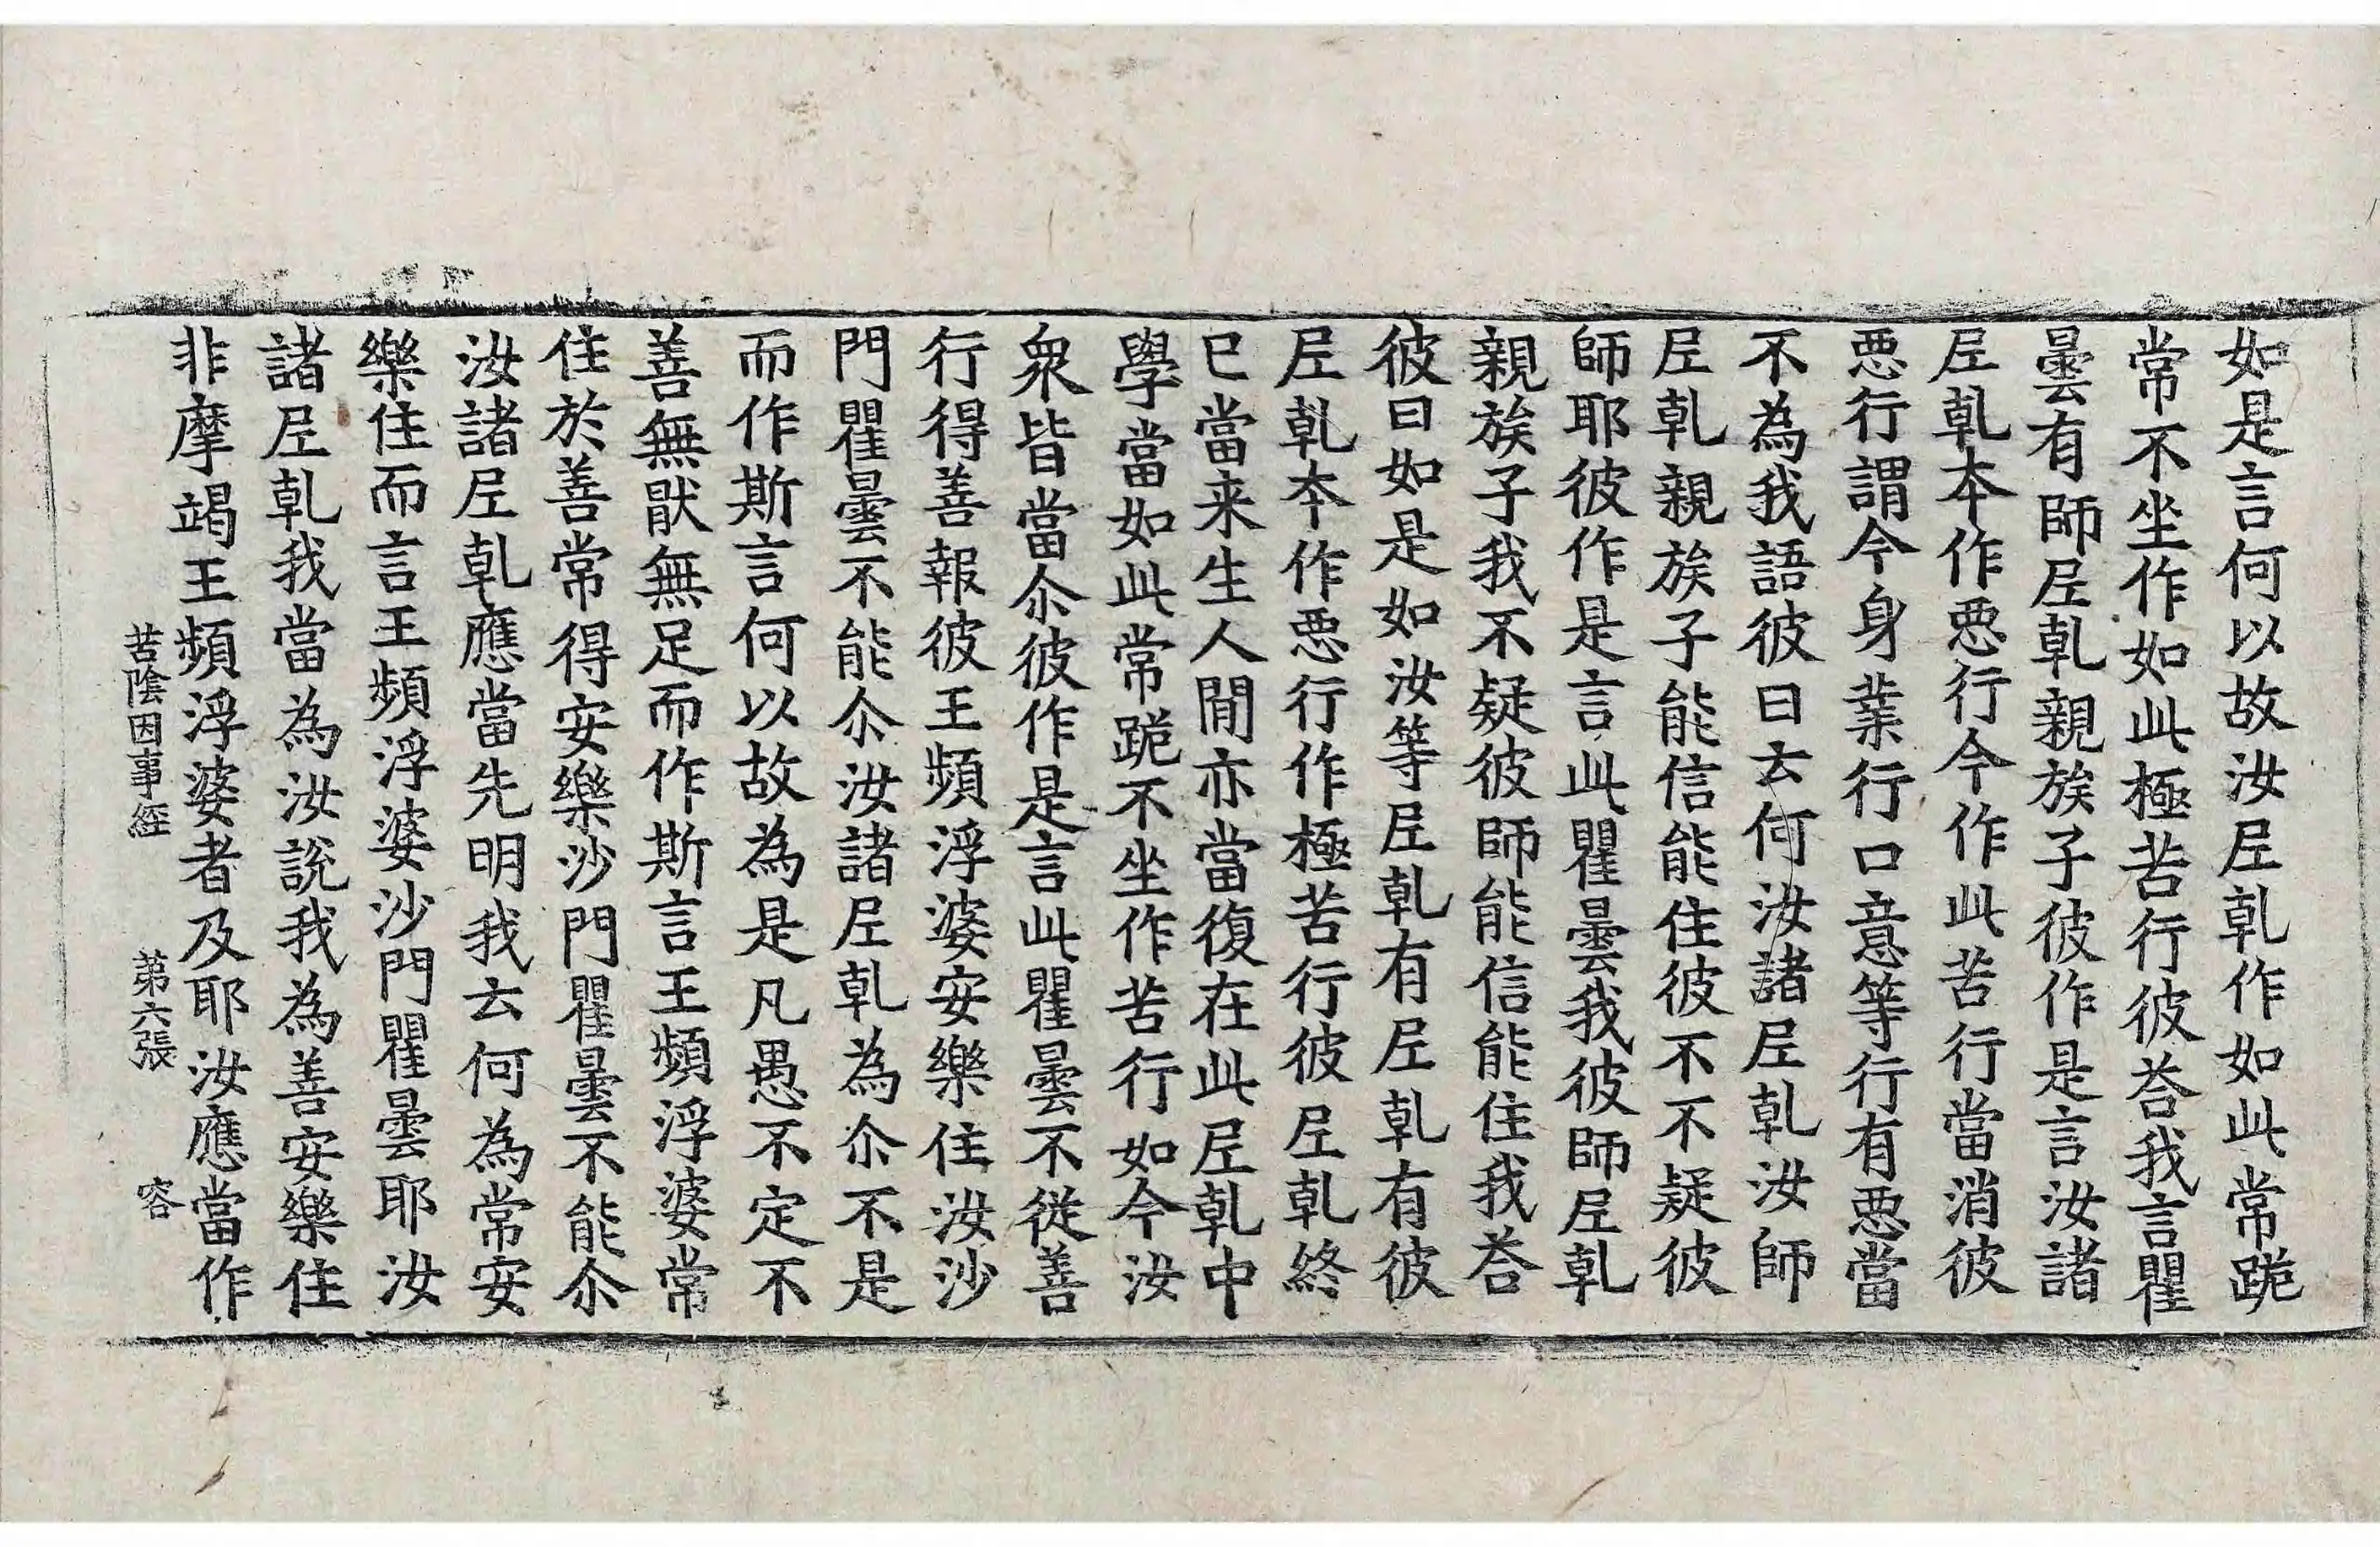 如是言何以故汝𡰱乹作如此常跪
常不坐作如此極苦行彼荅我言瞿
曇有師𡰱乹親族子彼作是言汝諸
𡰱乹本作惡行今作此苦行當消彼
惡行謂今身業行口意等行有惡當
不為我語彼曰云何汝諸𡰱乹汝師
𡰱乹親族子能信能住彼不不疑彼
師耶彼作是言此瞿曇我彼師𡰱乹
親族子我不疑彼師能信能住我荅
彼曰如是如汝等𡰱乹有𡰱乹有彼
𡰱乹本作惡行作極苦行彼𡰱乹終
已當来生人間亦當復在此𡰱乹中
學當如此常跪不坐作苦行如今汝
衆皆當尒彼作是言此瞿曇不從善
行得善報彼王頻浮婆安樂住汝沙
門瞿曇不能尒汝諸𡰱乹為尒不是
而作斯言何以故為是凡愚不定不
善無猒無足而作斯言王頻浮婆常
住於善常得安樂沙門瞿曇不能尒
汝諸𡰱乹應當先明我云何為常安
樂住而言王頻浮婆沙門瞿曇耶汝
諸𡰱乹我當為汝說我為善安樂住
非摩竭王頻浮婆者及耶汝應當作
苦陰因事經　第六張　容